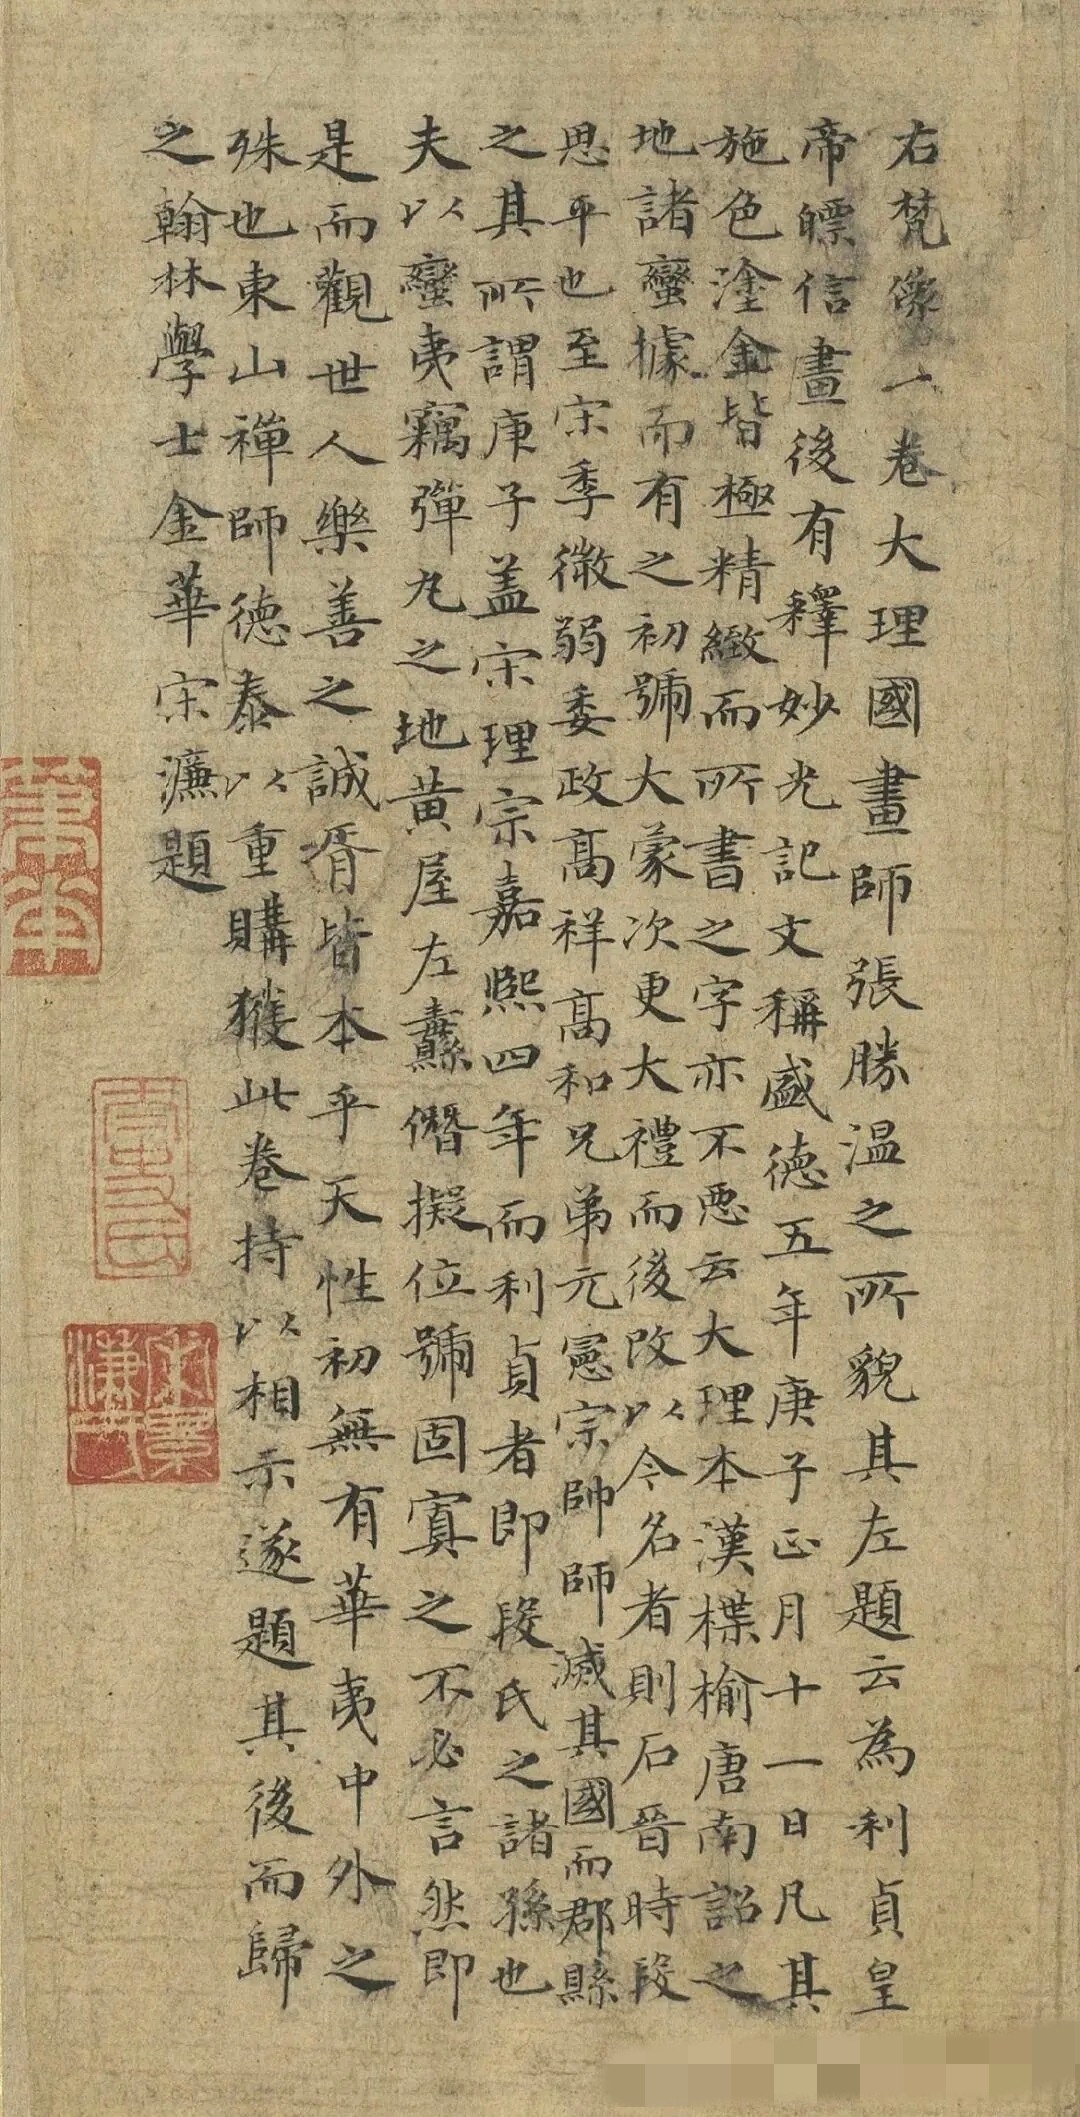 右梵像一卷大理國畫師張勝温之所貌其左題云為利貞皇
帝㬓信畫後有釋妙光記文稱盛德五年庚子正月十一日凡其
施色塗金皆極精緻而所書之字亦不惡云大理本漢楪榆唐南詔之
地諸蠻據而有之初號大蒙次更大禮而後改以今名者則石晉時段
思平也至宋季微弱委政高祥高和兄弟元憲宗帥師滅其國而郡縣
之其所謂庚子蓋宋理宗嘉熙四年而利貞者即段氏之諸孫也
夫以蠻夷竊彈丸之地黄屋左纛僭擬位號固寘之不必言然即
是而觀世人樂善之誠胥皆本乎天性初無有華夷中外之
殊也東山禪師德泰以重購獲此卷持以相示遂題其後而歸
之翰林學士金華宋濂題